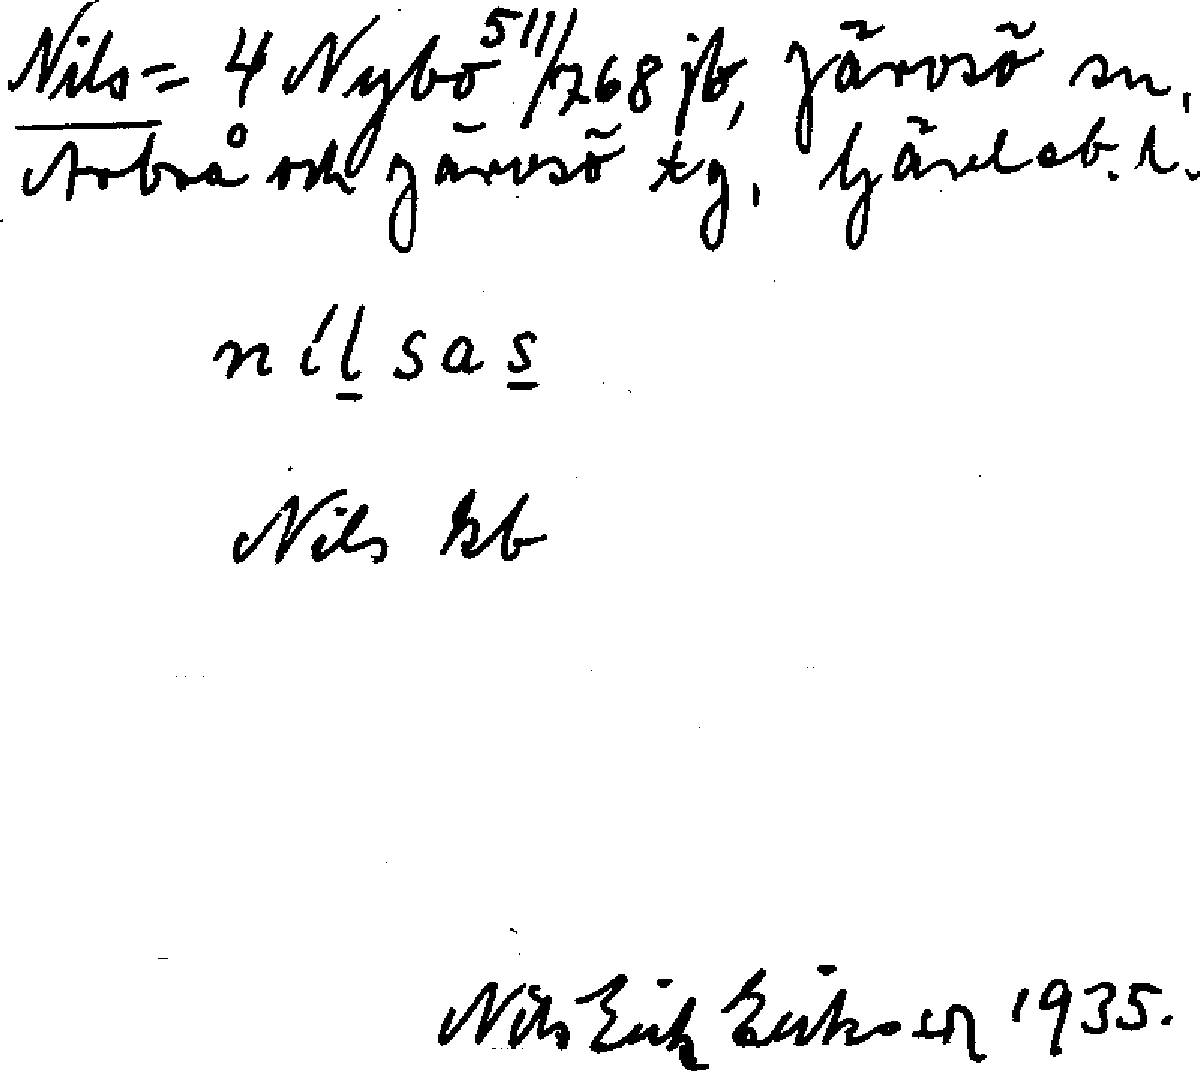 Nils = 4 Nybo 511/768 jb, Järvsö sn.
Arbrå och Järvsö tg, Gävleb. l.
nilsas
Nils kb
Nils Erik Eriksson 1935.